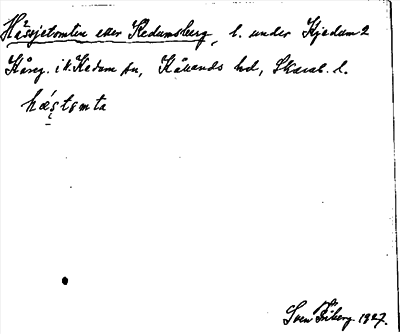 Hässjetomten eller Redumsberg, l. under Kjedum 2
Håreg. i V. Kedum sn, Kållands hd, Skarab. l.
hǽstomta
Sven Friberg 1927.